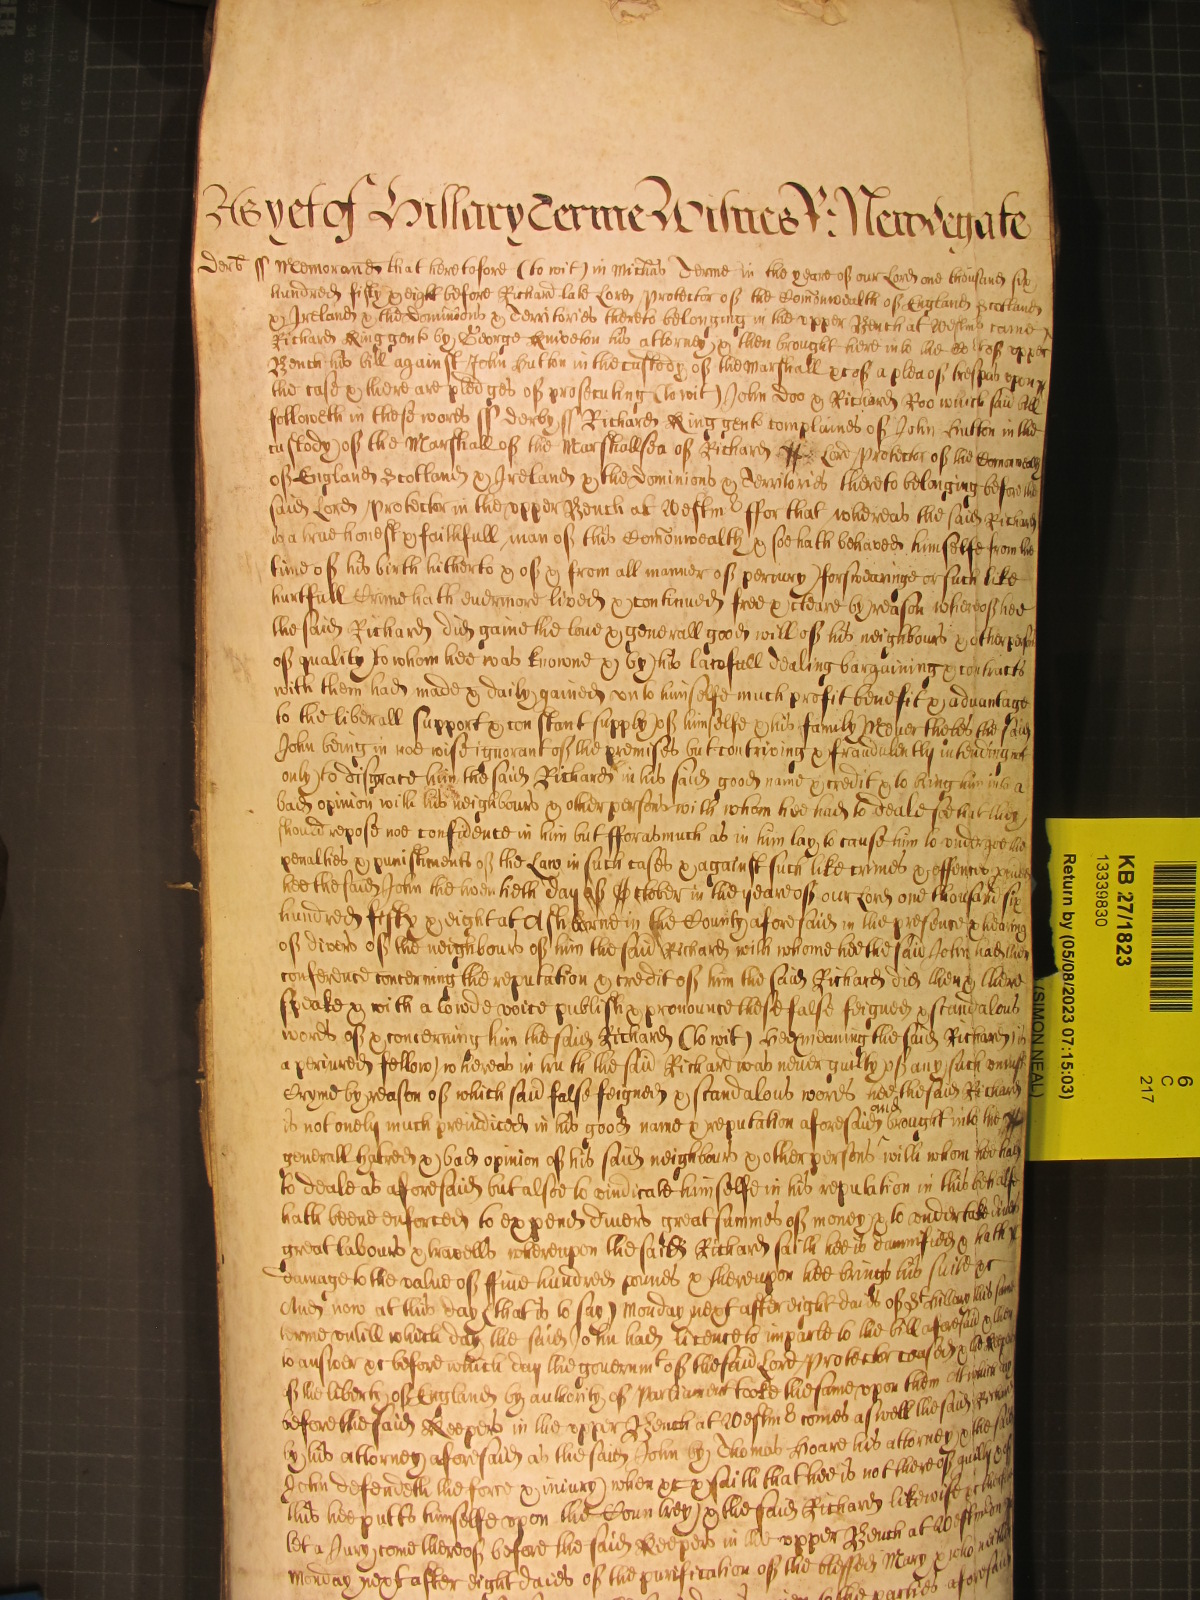 As yet of Hillary Terme Witnes R: Newdegate
Derb ss Memorand that heretofore (to wit) in Michas Terme in the yeare of our Lord one thousand six
hundred fifty & eight before Richard late Lord Protector of the Comonwealth of England Scotland
& Ireland & the dominions & Territories thereto belonging in the upper Bench at Westmr came
Richard King gent by George Kniveton his attorney & then brought here into the Court of upper
Bench his bill against John Hutton in the custody of the Marshall &c of a plea of trespas upon
the case & there are pledges of prosecuting (to wit) John Doo & Richard Roo which said bill
followeth in these words ss Derby ss Richard King gent complaines of John Hutton in the
custody of the Marshall of the Marshallsea of Richard Lord Protector of the Comonwealth
of England Scotland & Ireland & the Dominions & Territories thereto belonging before the
said Lord Protector in the upper Bench at Westmr ffor that whereas the said Richard
is a true honest & faithfull man of this Comonwealth & soe hath behaved himselfe from the
time of his birth hitherto & of & from all manner of periury forswearinge or such like
hurtfull Crime hath evermore lived & continued free & cleare by reason whereof hee
the said Richard did gaine the love & generall good will of his neighbours & other persons
of quality to whom hee was knowne & by his lawfull dealing bargaining & contracts
with them had made & daily gained unto himselfe much profit benefit & advantage
to the liberall support & constant supply of himselfe & his family Neverthelesse the said
John being in noe wise ignorant of the premises but contriving & fraudulently intending not
only to disgrace him the said Richard in his said good name & credit & to bring him into a
bad opinion with his neighbours & other persons with whom hee had to deale soe that they
should repose noe confidence in him but fforasmuch as in him lay to cause him to undergoe the
penalties & punishments of the Law in such cases & against such like crimes & offences
hee the said John the twentieth day of October in the yeare of our Lord one thousand six
hundred fifty & eight at Ashborne in the County aforesaid in the presence & hearing
of divers of the neighbours of him the said Richard with whome hee the said John had then
conference concerning the reputation & credit of him the said Richard did then & there
speake & with a lowde voice publish & pronounce these false feigned & scandalous
words of & concerning him the said Richard (to wit) Hee (meaning the said Richard) is
a periured fellow whereas in truth the said Richard was never guilty of any such
Cryme by reason of which said false feigned & scandalous words hee the said Richard
is not onely much preiudiced in his good name & reputation aforesaid and brought into the
generall hatred & bad opinion of his said neighbours & other persons with whom hee hath
to deale as aforesaid but alsoe to vindicate himselfe in his reputation in this behalfe
hath beene enforced to expend divers great summes of money & to undertake divers
great labours & travells whereupon the said Richard saith hee is damnified & hath
damage to the value of ffive hundred pounds & thereupon hee brings his suite &c
And now at this day (that is to say) Monday next after eight daies of St Hillary this same
terme untill which day the said John had licence to imparle to the bill aforesaid & then
to answer &c before which day the governmt of the said Lord Protector ceased & the Keepers
of the liberty of England by authority of Parliament tooke the same upon them At which day
before the said Keepers in the upper Bench at Westmr comes aswell the said Richard
by his attorney aforesaid as the said John by Thomas Hoare his attorney & the said
John defendeth the force & iniury when &c & saith that hee is not thereof guilty & of
this hee putts himselfe upon the Countrey & the said Richard likewise &c therefore
let a Jury come thereof before the said Keepers in the upper Bench at Westminster on
Monday next after eight daies of the purification of the blessed Mary & who neither
to the parties aforesaid
KB 27/1823
13339830
Return by (05/08/2023 07:15:03)
(SIMON NEAL)
6
C
217